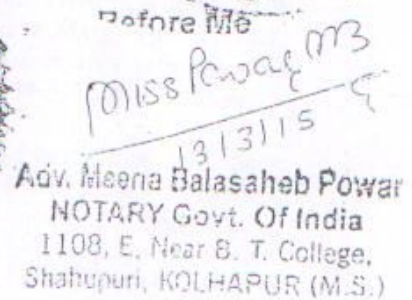 Before Me
Miss Powar MB
13/3/15
Adv. Meena Balasaheb Powar
NOTARY Govt. Of India
1108, E, Near B. T. College,
Shahupuri, KOLHAPUR (M.S.)